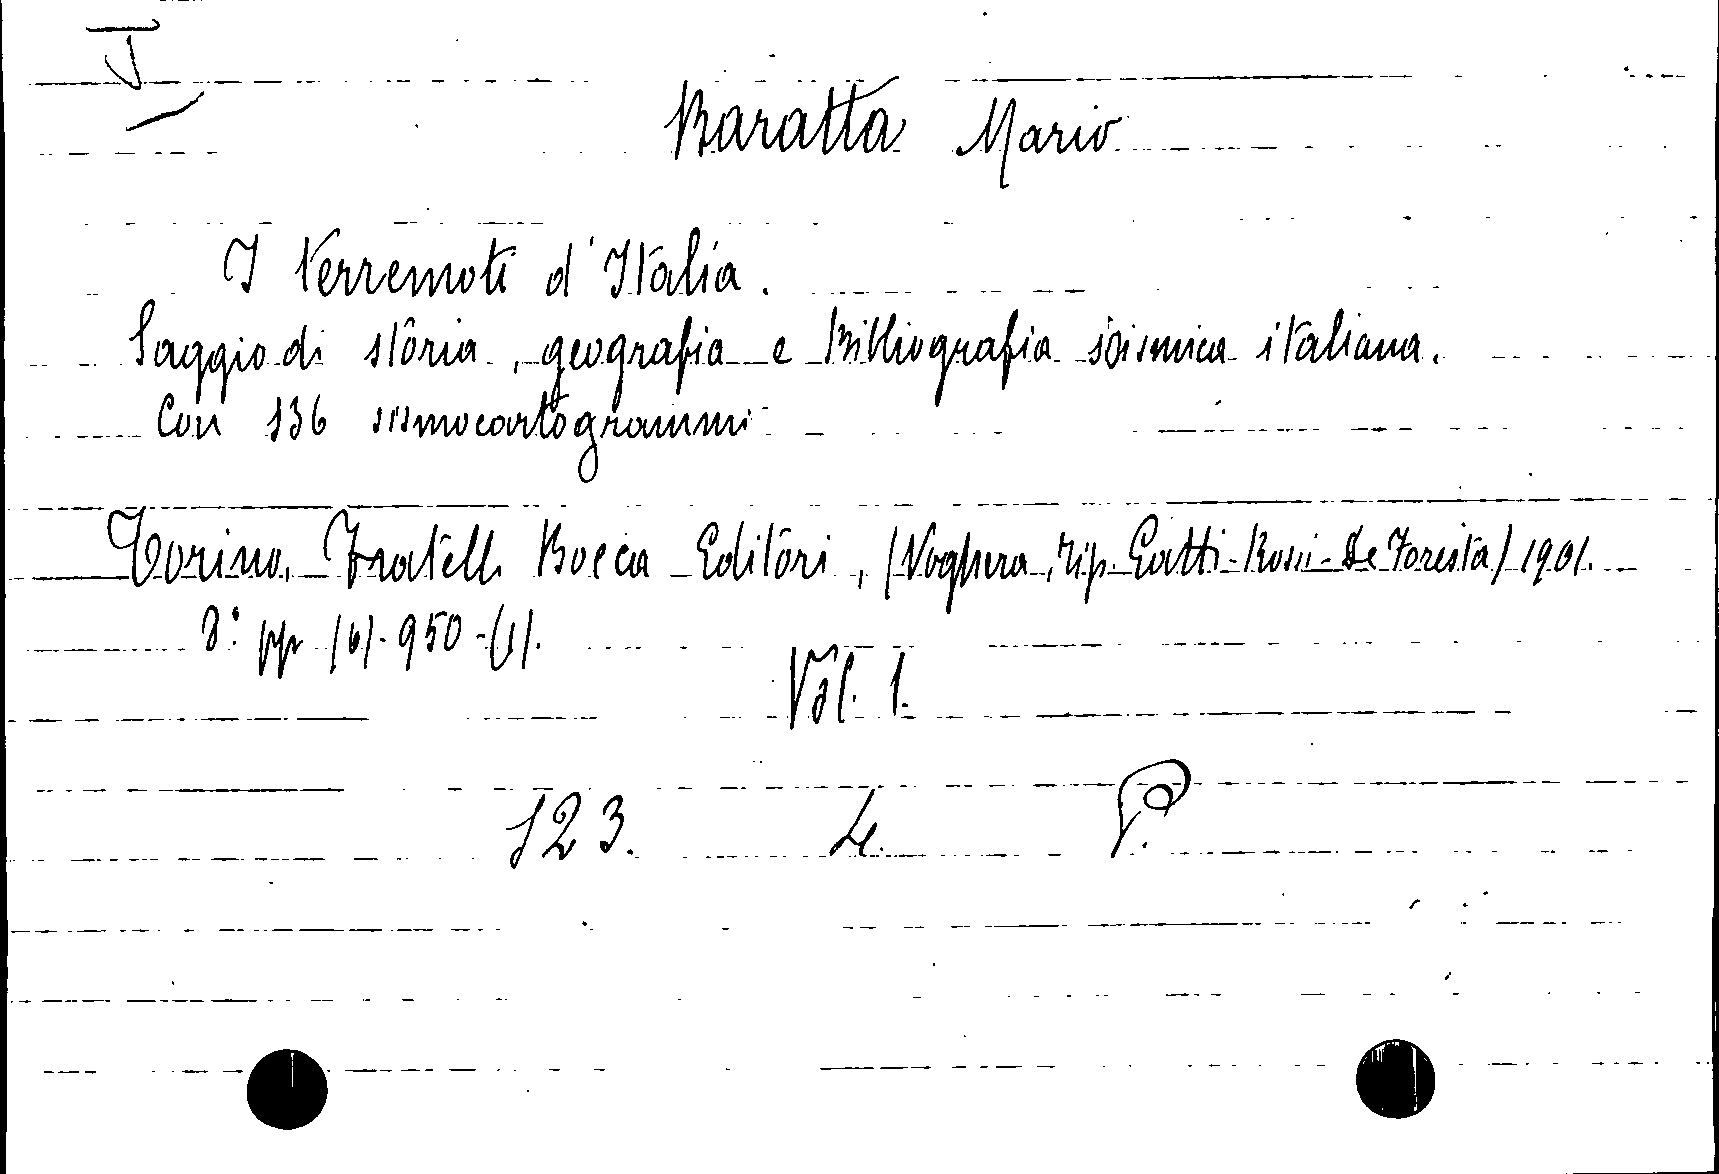 I
Baratta Mario
I terremoti d'Italia.
Saggio di storia, geografia e Bibliografia sismica italiana.
Con 136 sismocartogrammi
Torino, Fratelli Bocca Editori, (Voghera, Tip. Gatti-Rossi-De Foresta) 1901.
8° pp (6)-950-(1).
Vol. 1.
123. 4. P.